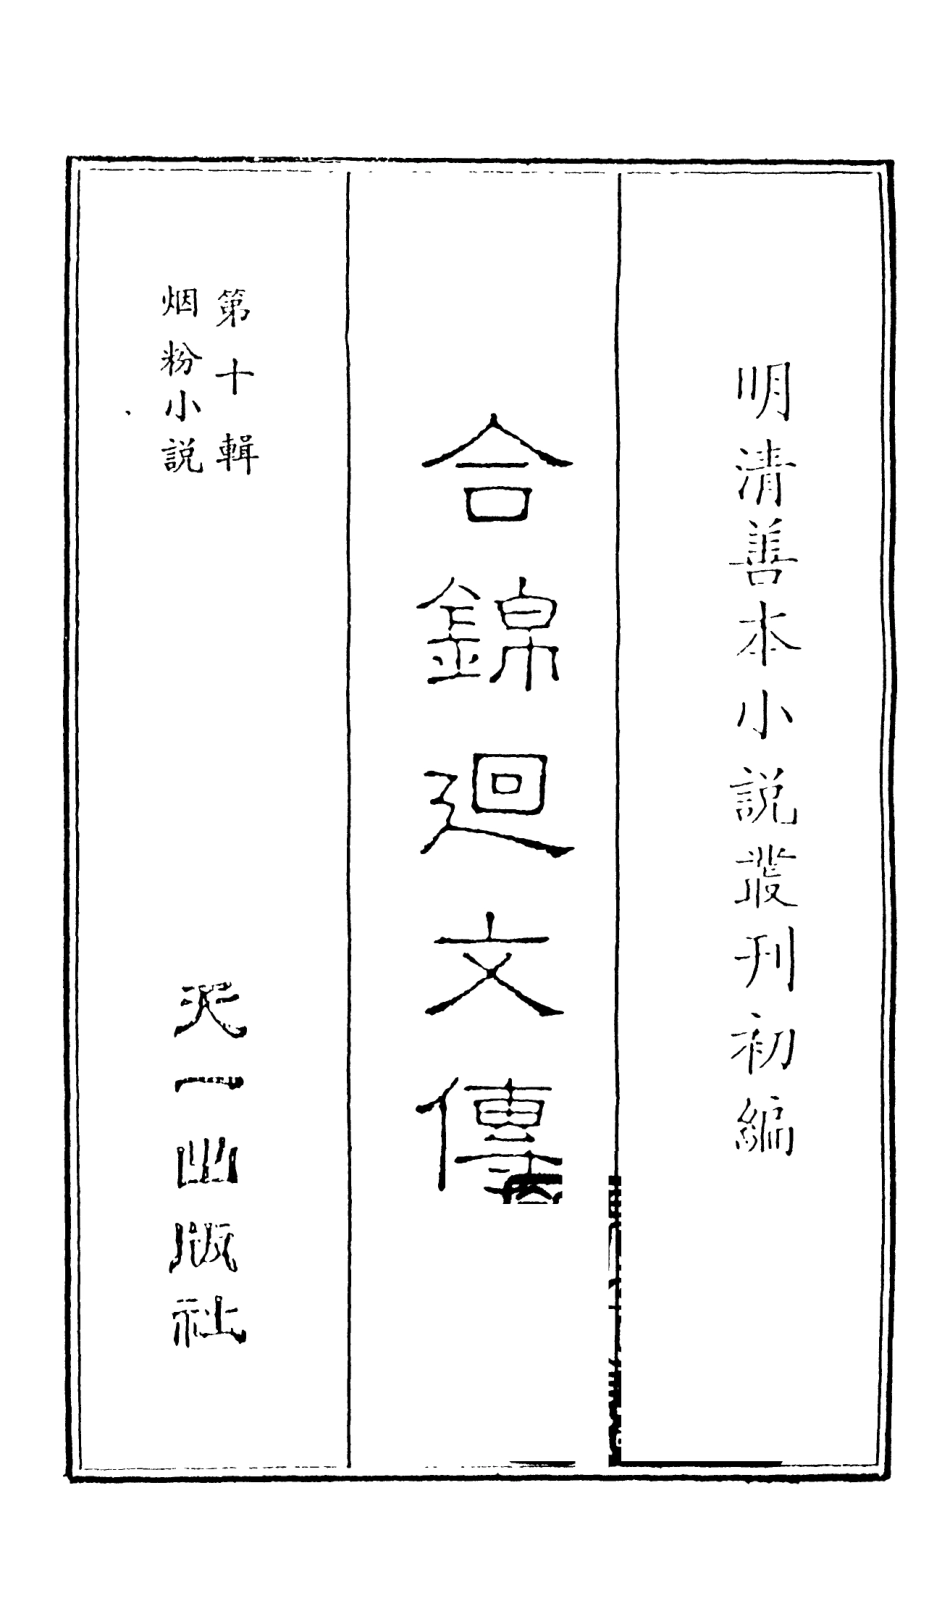 明清善本小説叢刊初編
合錦迴文傳
第十輯
烟粉小説
天一出版社